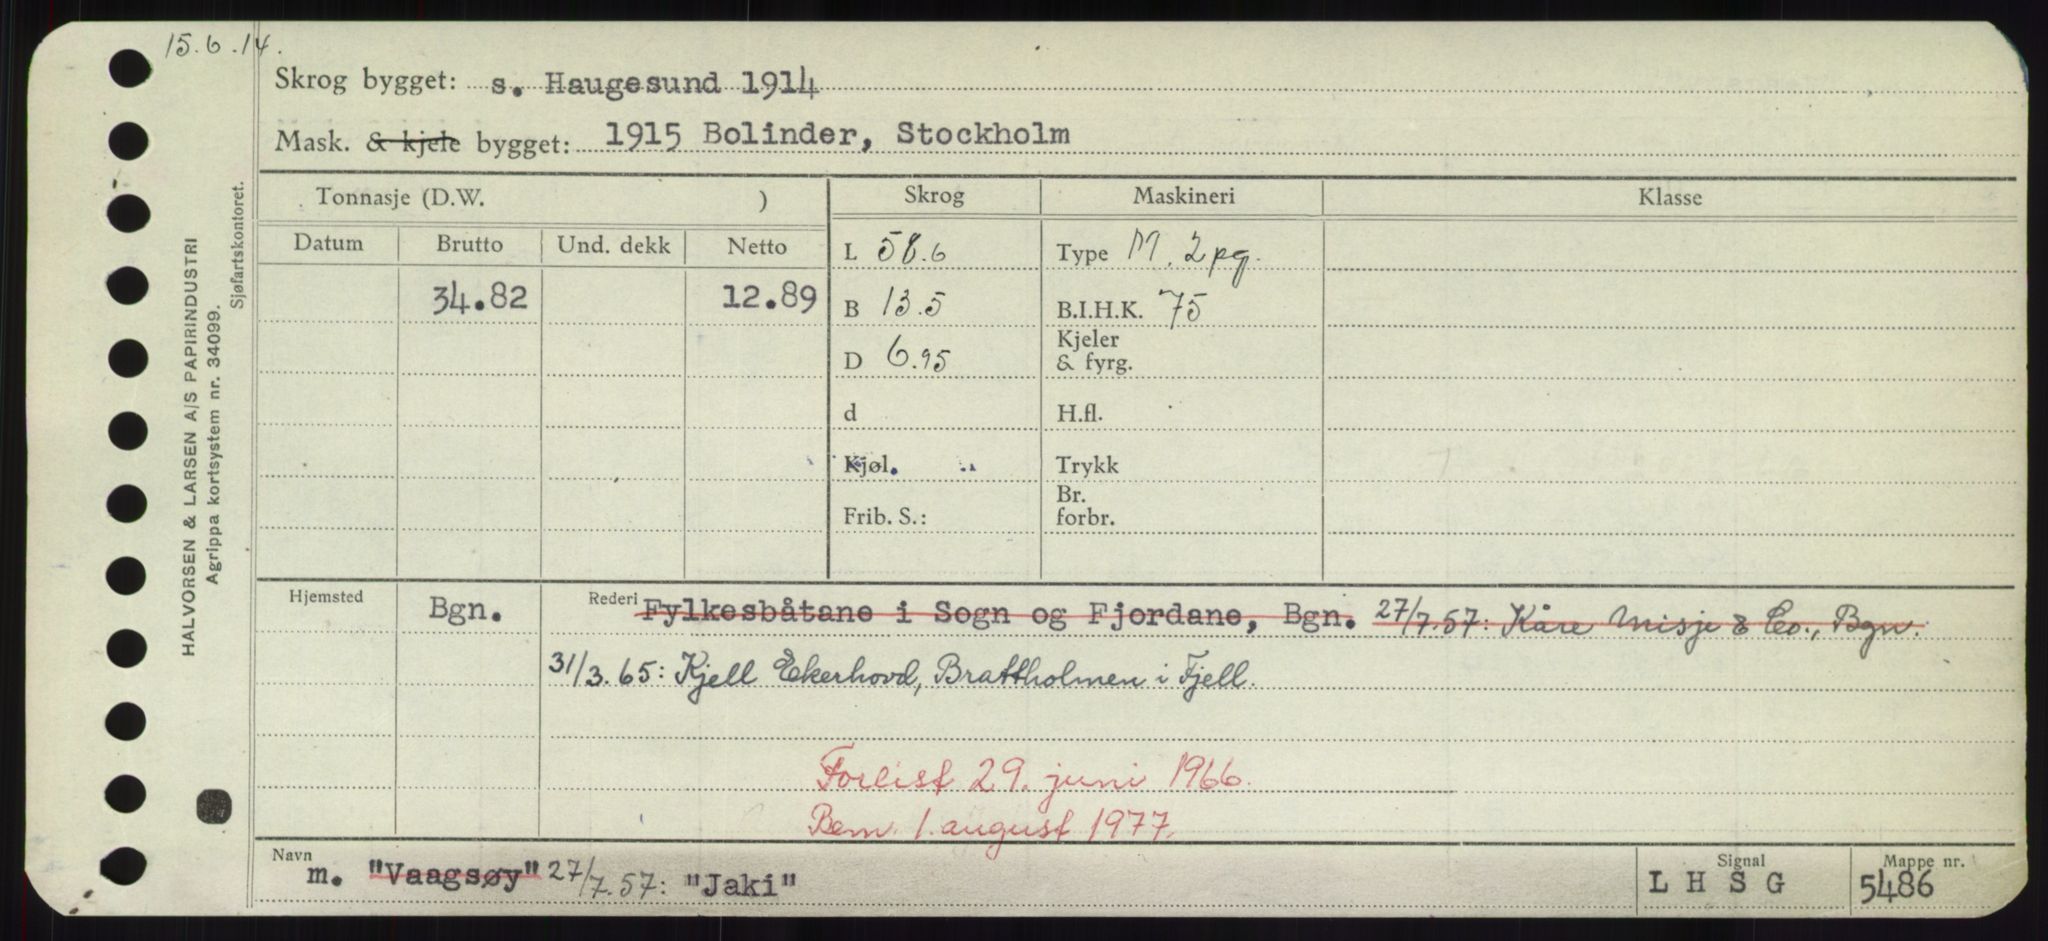 15.6.14.
Skrog bygget: s. Haugesund 1914
Mask. & kjele bygget: 1915 Bolinder, Stockholm
HALVORSEN & LARSEN A/S PAPIRINDUSTRI
Agrippa kortsystem nr. 34099.
Sjøfartskontoret.
Tonnasje (D.W. ) Skrog Maskineri Klasse
Datum Brutto Und. dekk Netto
L 58.6 Type M. 2pg.
34.82 12.89 B 13.5 B.I.H.K. 75
D 6.95 Kjeler & fyrg.
d H.fl.
Kjøl. Trykk
Frib. S.: Br. forbr.
Hjemsted Bgn. Rederi Fylkesbåtane i Sogn og Fjordane, Bgn. 27/7.57: Kåre Misje & Co., Bgn.
31/3.65: Kjell Ekerhovd, Brattholmen i Fjell.
Forlist 29. juni 1966.
Bem. 1. august 1977.
Navn m. "Vaagsøy" 27/7.57: "Jaki" Signal L H S G Mappe nr. 5486